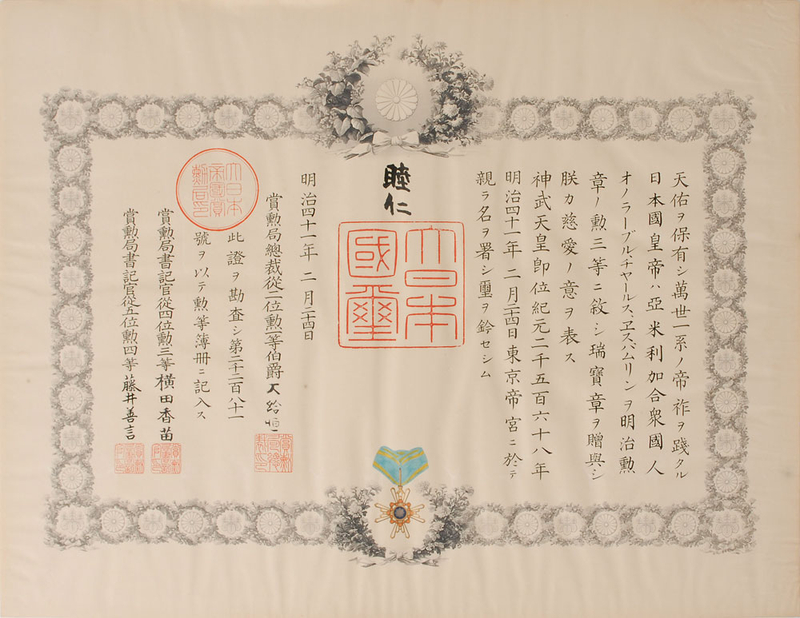 天佑ヲ保有シ萬世一系ノ帝祚ヲ踐タル
日本國皇帝ハ亞米利加合衆國人
オノラーブル、チヤールス、ヱス、ハムリンヲ明治勲
章ノ勲三等ニ敘シ瑞寶章ヲ贈與シ
朕カ慈愛ノ意ヲ表ス
神武天皇即位紀元二千五百六十八年
明治四十一年二月二十四日東京帝宮ニ於テ
親ラ名ヲ署シ璽ヲ鈐セシム
睦仁
大日本
國璽
明治四十一年二月二十四日
賞勲局總裁從二位勲一等伯爵大給恒
此證ヲ勘査シ第二千二百八十一
號ヲ以テ勲等簿冊ニ記入ス
賞勲局書記官從四位勲三等横田香苗
賞勲局書記官從五位勲四等藤井善言